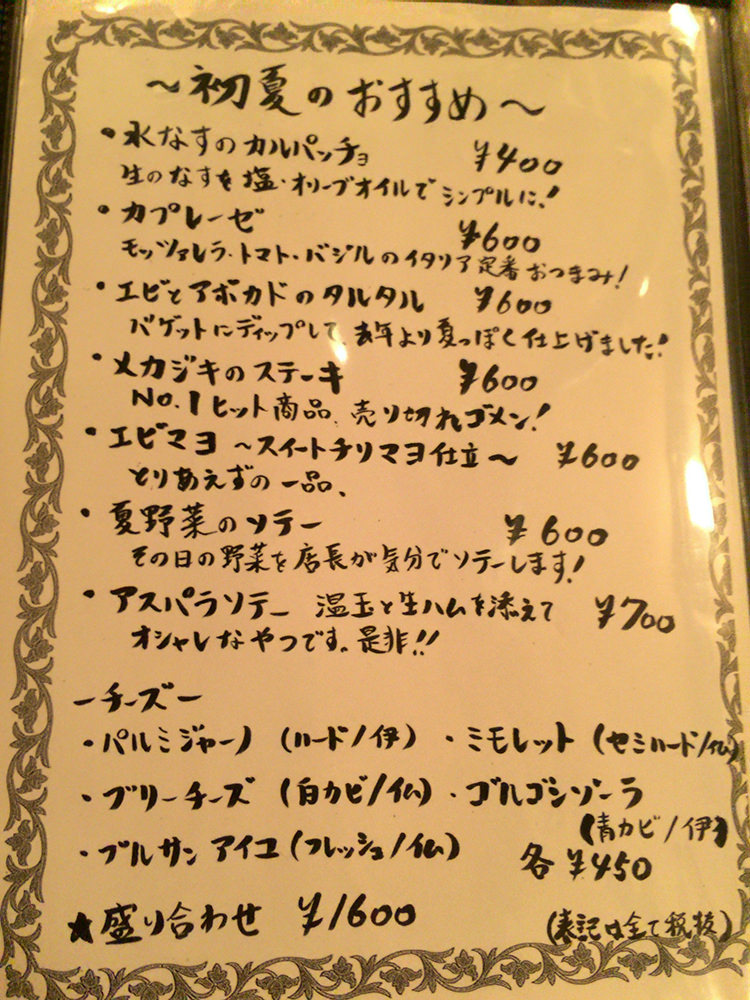 ～初夏のおすすめ～
・水なすのカルパッチョ ¥400
生のなすを塩・オリーブオイルでシンプルに!
・カプレーゼ ¥600
モッツァレラ・トマト・バジルのイタリア定番おつまみ!
・エビとアボカドのタルタル ¥600
バゲットにディップして、去年より夏っぽく仕上げました!
・メカジキのステーキ ¥600
No.1ヒット商品、売り切れゴメン!
・エビマヨ ～スイートチリマヨ仕立～ ¥600
とりあえずの一品、
・夏野菜のソテー ¥600
その日の野菜を店長が気分でソテーします!
・アスパラソテー 温玉と生ハムを添えて ¥700
オシャレなやつです。是非!!
ーチーズー
・パルミジャーノ (ハード/伊) ・ミモレット (セミハード/仏)
・ブリーチーズ (白カビ/仏) ・ゴルゴンゾーラ
(青カビ/伊)
・ブルサン アイユ (フレッシュ/仏) 各 ¥450
★盛り合わせ ¥1600 (表記は全て税抜)